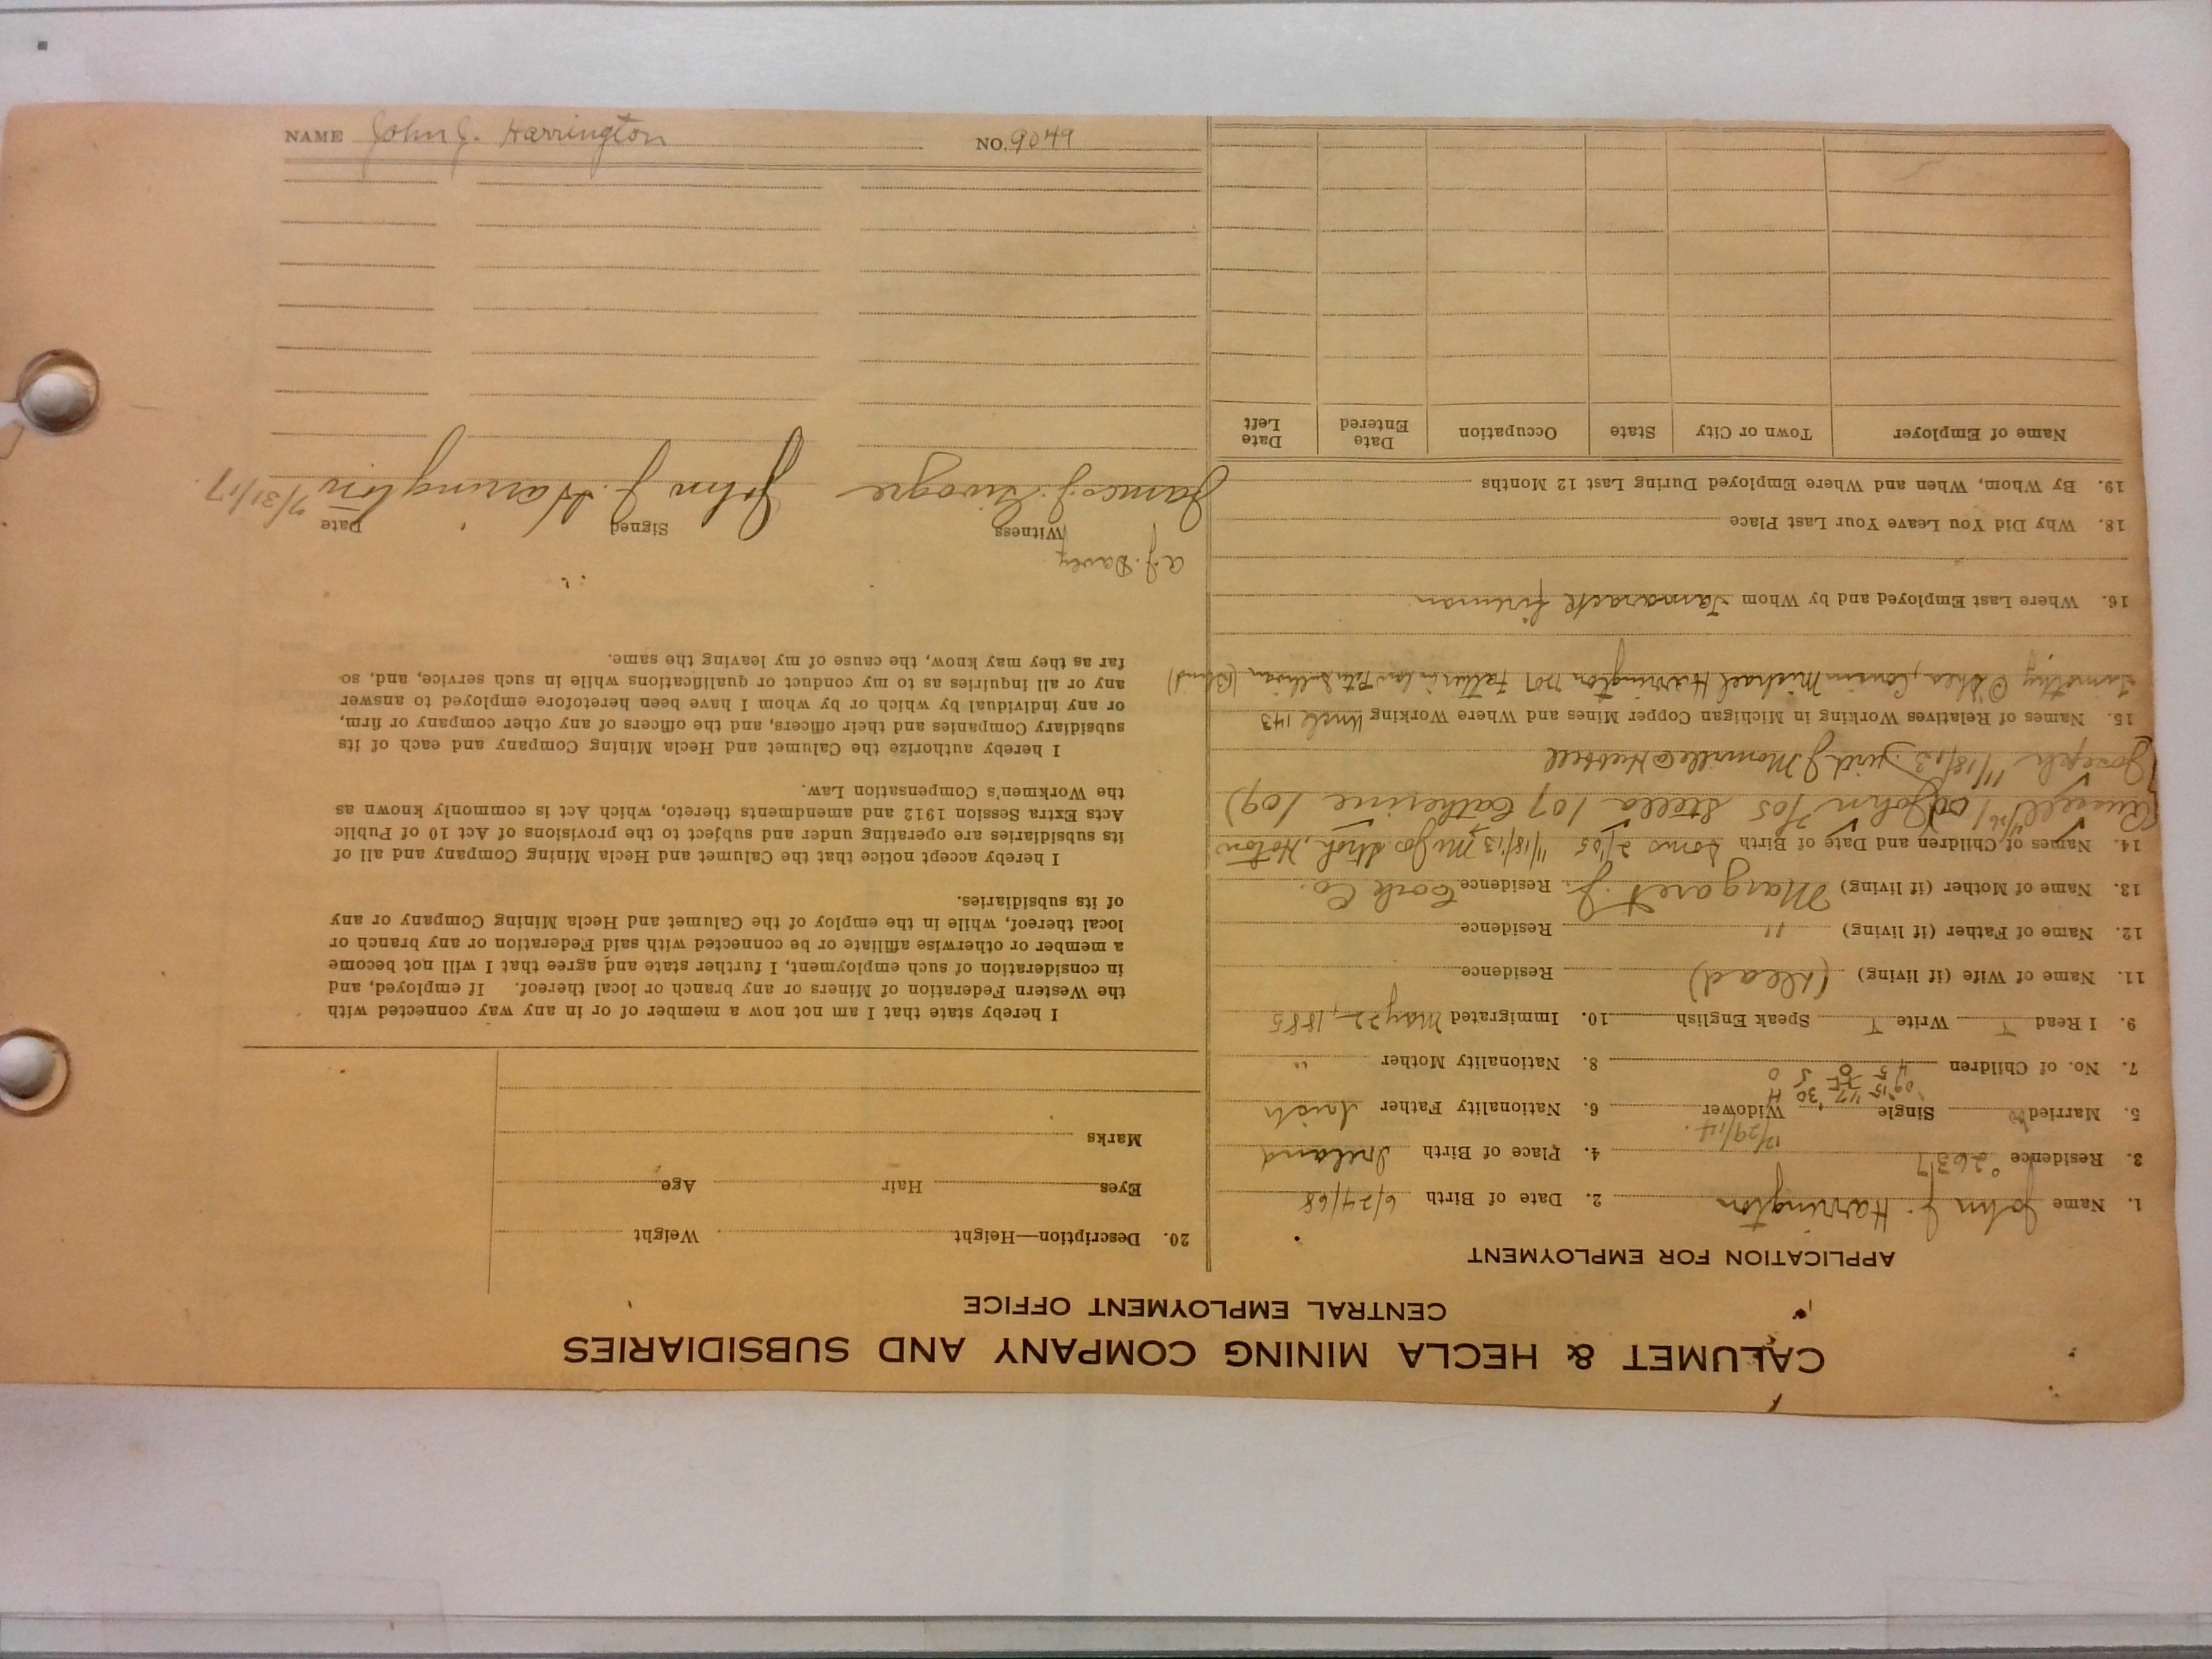 CALUMET & HECLA MINING COMPANY AND SUBSIDIARIES
CENTRAL EMPLOYMENT OFFICE
APPLICATION FOR EMPLOYMENT
1. Name John J. Harrington 2. Date of Birth 6/24/68
3. Residence 2637 4. Place of Birth Ireland
12/29/14
5. Married Single Widower 6. Nationality Father Irish
7. No. of Children 8. Nationality Mother "
9. I Read Y Write Y Speak English 10. Immigrated May 22, 1885
11. Name of Wife (if living) (Dead) Residence
12. Name of Father (if living) " Residence
13. Name of Mother (if living) Margaret J. Residence Cork Co.
14. Names of Children and Date of Birth Sons 2/05 11/18/13
Russell John 2/05 Stella 107 Catherine 109)
Joseph 11/18/13 Hubbell
15. Names of Relatives Working in Michigan Copper Mines and Where Working Uncle 143
Timothy O'Shea, Cousin Michael Harrington Father in law Peter Sullivan
16. Where Last Employed and by Whom Tamarack fireman
18. Why Did You Leave Your Last Place
19. By Whom, When and Where Employed During Last 12 Months
Name of Employer Town or City State Occupation Date Entered Date Left
20. Description—Height Weight
Eyes Hair Age
Marks
I hereby state that I am not now a member of or in any way connected with
the Western Federation of Miners or any branch or local thereof. If employed, and
in consideration of such employment, I further state and agree that I will not become
a member or otherwise affiliate or be connected with said Federation or any branch or
local thereof, while in the employ of the Calumet and Hecla Mining Company or any
of its subsidiaries.
I hereby accept notice that the Calumet and Hecla Mining Company and all of
its subsidiaries are operating under and subject to the provisions of Act 10 of Public
Acts Extra Session 1912 and amendments thereto, which Act is commonly known as
the Workmen's Compensation Law.
I hereby authorize the Calumet and Hecla Mining Company and each of its
subsidiary Companies and their officers, and the officers of any other company or firm,
or any individual by which or by whom I have been heretofore employed to answer
any or all inquiries as to my conduct or qualifications while in such service, and, so
far as they may know, the cause of my leaving the same.
A.J. Davey
Witness Signed Date
James J. John J. Harrington 7/31/17
NAME John J. Harrington NO. 9049